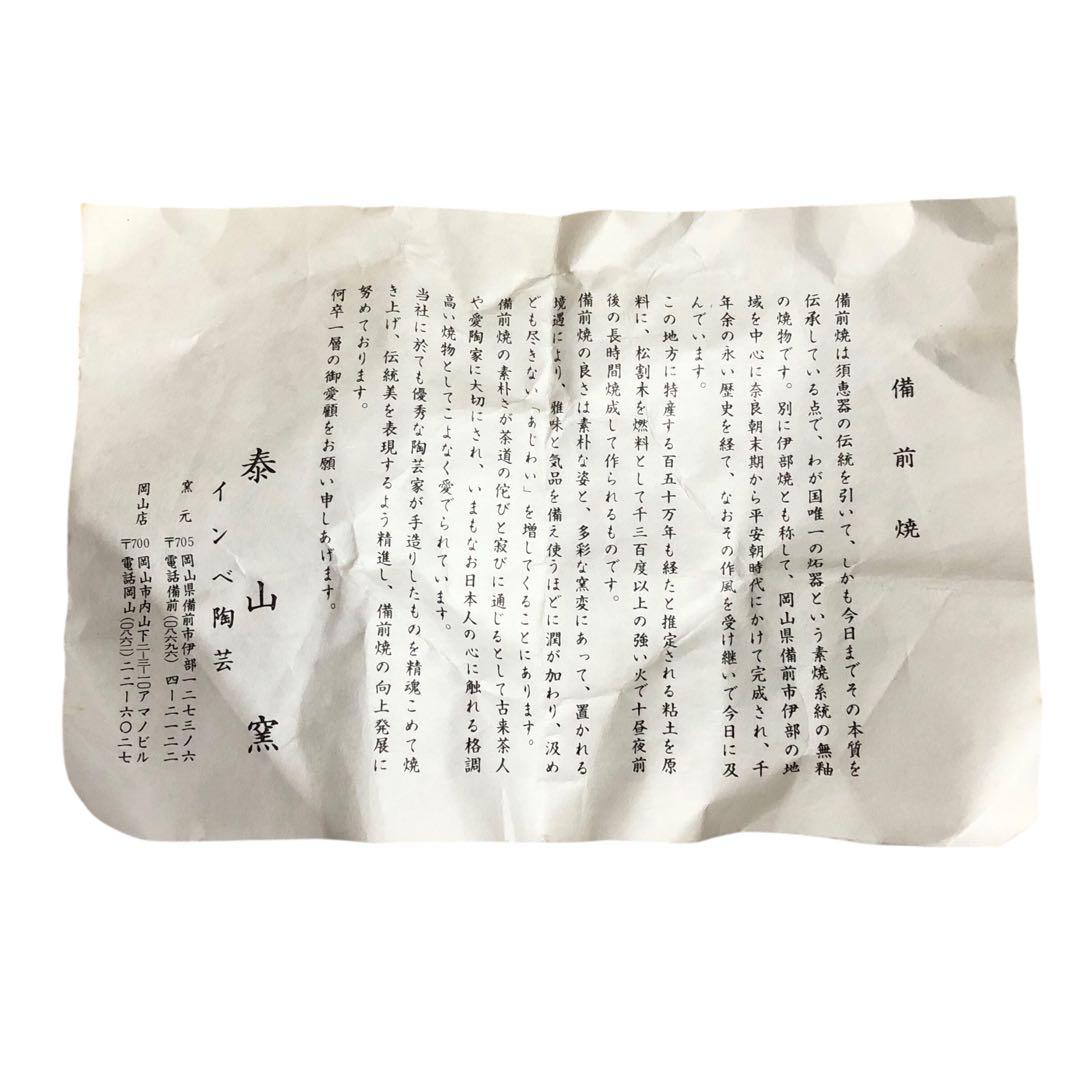 備前焼
備前焼は須恵器の伝統を引いて、しかも今日までその本質を
伝承している点で、わが国唯一の炻器という素焼系統の無釉
の焼物です。別に伊部焼とも称して、岡山県備前市伊部の地
域を中心に奈良朝末期から平安朝時代にかけて完成され、千
年余の永い歴史を経て、なおその作風を受け継いで今日に及
んでいます。
この地方に特産する百五十万年も経たと推定される粘土を原
料に、松割木を燃料として千三百度以上の強い火で十昼夜前
後の長時間焼成して作られるものです。
備前焼の良さは素朴な姿と、多彩な窯変にあって、置かれる
境遇により、雅味と気品を備え使うほどに潤が加わり、汲め
ども尽きない「あじわい」を増してくることにあります。
備前焼の素朴さが茶道の侘びと寂びに通じるとして古来茶人
や愛陶家に大切にされ、いまもなお日本人の心に触れる格調
高い焼物としてこよなく愛でられています。
当社に於ても優秀な陶芸家が手造りしたものを精魂こめて焼
き上げ、伝統美を表現するよう精進し、備前焼の向上発展に
努めております。
何卒一層の御愛顧をお願い申しあげます。
泰山窯
インベ陶芸
窯元 〒705 岡山県備前市伊部一二七三ノ六
電話備前(〇八六九六)四―二一二二
岡山店 〒700 岡山市内山下二―三―一〇アマノビル
電話岡山(〇八六二)二二―六〇二七